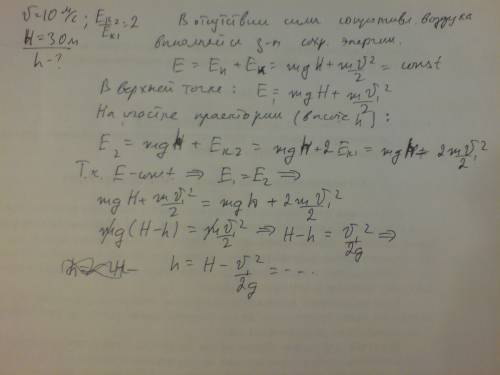 v=10 м/с; Eк2/Eк1=2
H=30м
h-?
В отсутствии силы сопротивл. воздуха
выполняется з-н сохр. энергии.
E = Eп + Eк = mgH + mv²/2 = const
В верхней точке: E₁ = mgH + mv₁²/2
На участке траектории (высоте h):
E₂ = mgh + Eк2 = mgh+2Eк1 = mgh + 2mv₁²/2
Т.к. E-const ⇒ E₁=E₂ ⇒
mgH + mv₁²/2 = mgh + 2mv₁²/2
mg(H-h) = mv₁²/2 ⇒ H-h = v₁²/2g ⇒
h = H - v₁²/2g = ----